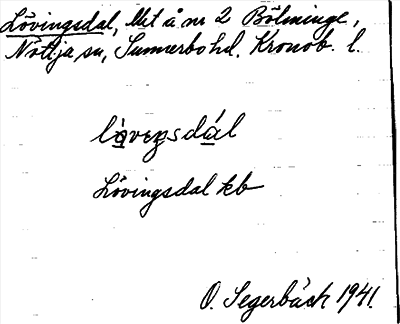 Lövingsdal, Met å nr 2 Bölminge,
Nöttja sn, Sunnerbo hd. Kronob. l.
Lövingsdal kb
O. Segerbäck 1941.